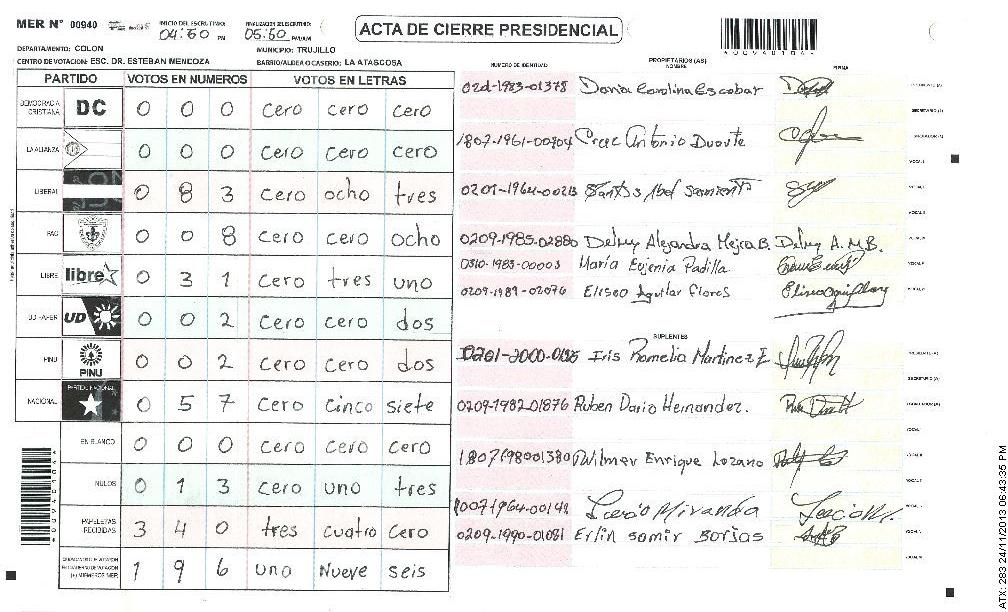 MER N° 00940 INICIO DEL ESCRUTINIO: 04:50 PM FINALIZACION DEL ESCRUTINIO: 05:50 PM/AM ACTA DE CIERRE PRESIDENCIAL
DEPARTAMENTO: COLON MUNICIPIO: TRUJILLO
CENTRO DE VOTACION: ESC. DR. ESTEBAN MENDOZA BARRIO/ALDEA O CASERIO: LA ATASCOSA
PARTIDO VOTOS EN NUMEROS VOTOS EN LETRAS
NUMERO DE IDENTIDAD PROPIETARIOS (AS) NOMBRE FIRMA
DEMOCRACIA CRISTIANA DC 0 0 0 cero cero cero
LA ALIANZA 0 0 0 cero cero cero
LIBERAL 0 8 3 cero ocho tres
PAC 0 0 8 cero cero ocho
LIBRE libre 0 3 1 cero tres uno
UD UD 0 0 2 cero cero dos
PINU PINU 0 0 2 cero cero dos
NACIONAL PARTIDO NACIONAL 0 5 7 cero cinco siete
EN BLANCO 0 0 0 cero cero cero
NULOS 0 1 3 cero uno tres
PAPELETAS RECIBIDAS 3 4 0 tres cuatro cero
1 9 6 uno Nueve seis
1983-01378 Dania Carolina Escobar
1807-1961-00704 Antonio Duarte
0201-1964-00213 Santos Abel Sarmiento
0209-1985-02880 Delmy Alejandra Mejia B. Delmy A. M.B.
0310-1983-00003 María Eujenia Padilla
0209-1989-02076 Eliseo Aguilar Flores
SUPLENTES
Iris Romelia Martinez
0209-1982-01876 Ruben Dario Hernandez.
1807198001380 Wilmer Enrique Lozano
Miranda
0209-1990-01081 Erlin Samir Borjas
ATX: 283 24/11/2013 06:43:35 PM